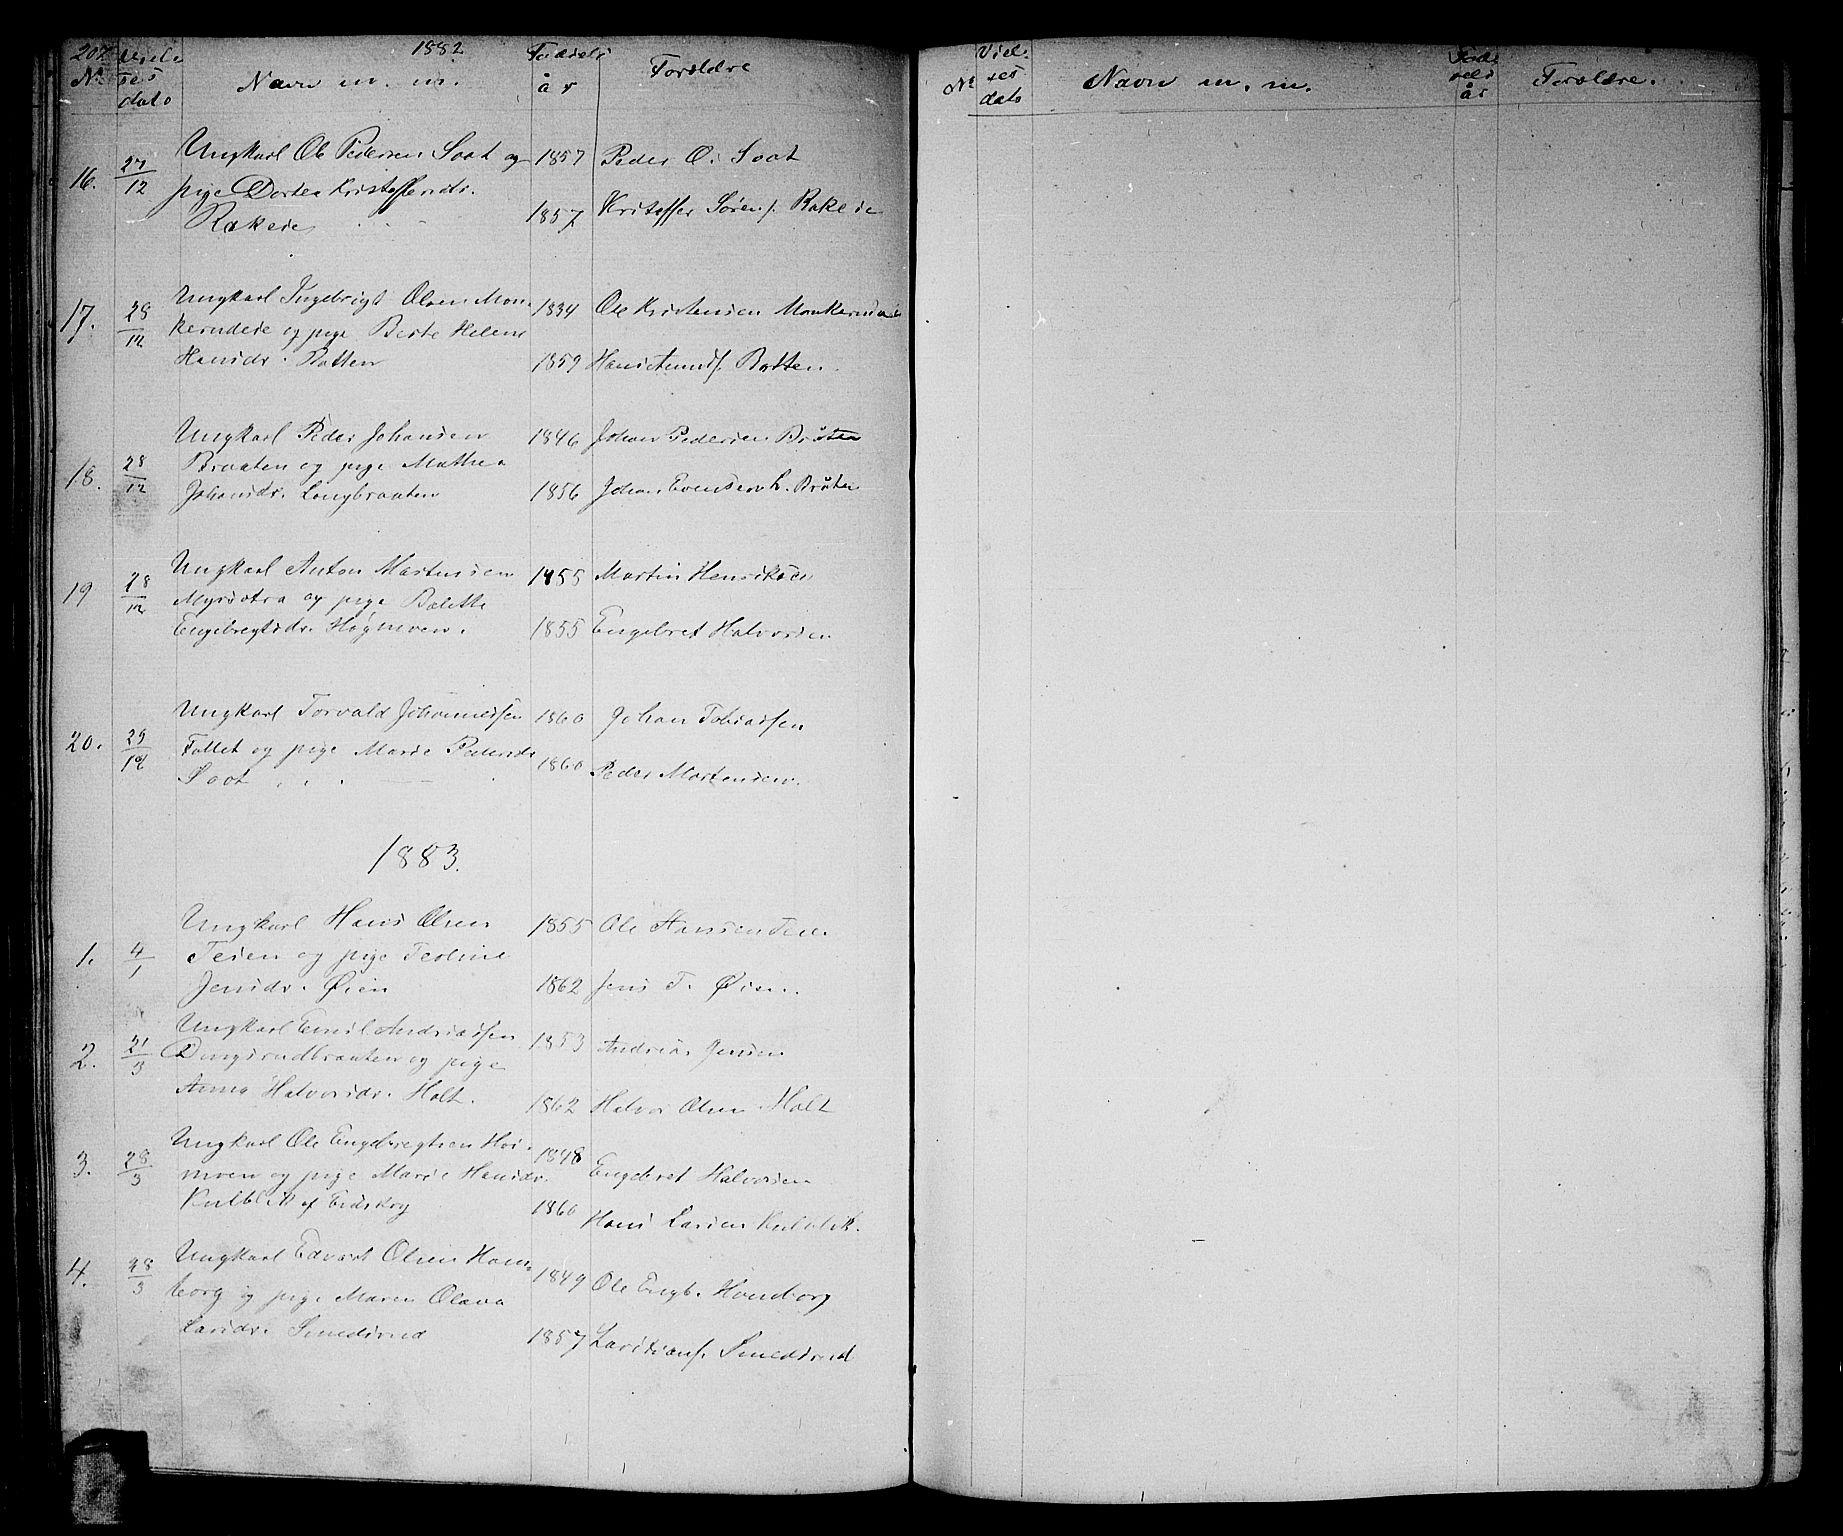 207 Viel- 1882 Fødsels Forældre
No ses Navn m. m. år
dato
Ungkarl Ole Pedersen Soot og 1857 Peder O. Soot
16. 27/12 pige Dortea Kristoffersdr.
Rakeie 1857 Kristoffer Sørens. Rakeie
Ungkarl Ingebrigt Olsen Mon- 1834 Ole Kristensen
17. 28/12 kerudeie og pige Berte Helene
Hansdr. Botten 1859 Hans Botten.
Ungkarl Peder Johansen 1846 Johan Pedersen Bråten
18. 28/12 Braaten og pige Mathea
Johansdr. Langbraaten 1856 Johan Evensen L. Bråten
Ungkarl Anton Martinsen 1855 Martin Henriksen
19 28/12 og pige Bolette
Engebregtsdr. Høgmoen. 1855 Engebret Halvorsen
Ungkarl Torvald Johannessen 1860 Johan Tobiassen
20. 29/12 Follet og pige Marie Pedersdr
Soot 1860 Peder Mortensen.
1883.
Ungkarl Hans Olsen 1855 Ole Hansen Teie.
1. 4/1 Teien og pige
Jensdr. Øien 1862 Jens T. Øien.
Ungkarl Emil Andreassen 1853 Andreas Jensen
2. 21/3 og pige
Anna Halvorsdr. Holt. 1862 Halvor Olsen Holt
Ungkarl Ole Engebregtsen Høi- 1848 Engebret Halvorsen
3. 28/3 moen og pige Marie Hansdr.
Kulblik af Eidskog 1860 Hans Larsen Kulblik.
Ungkarl Edvart Olsen Ham- 1849 Ole Engb. Hamborg
4. 28/3 borg og pige Maren Olava
Larsdr. Smedsrud 1857 Lars Smedsrud
No Viel- ses dato Navn m. m. Fødselsår Forældre.